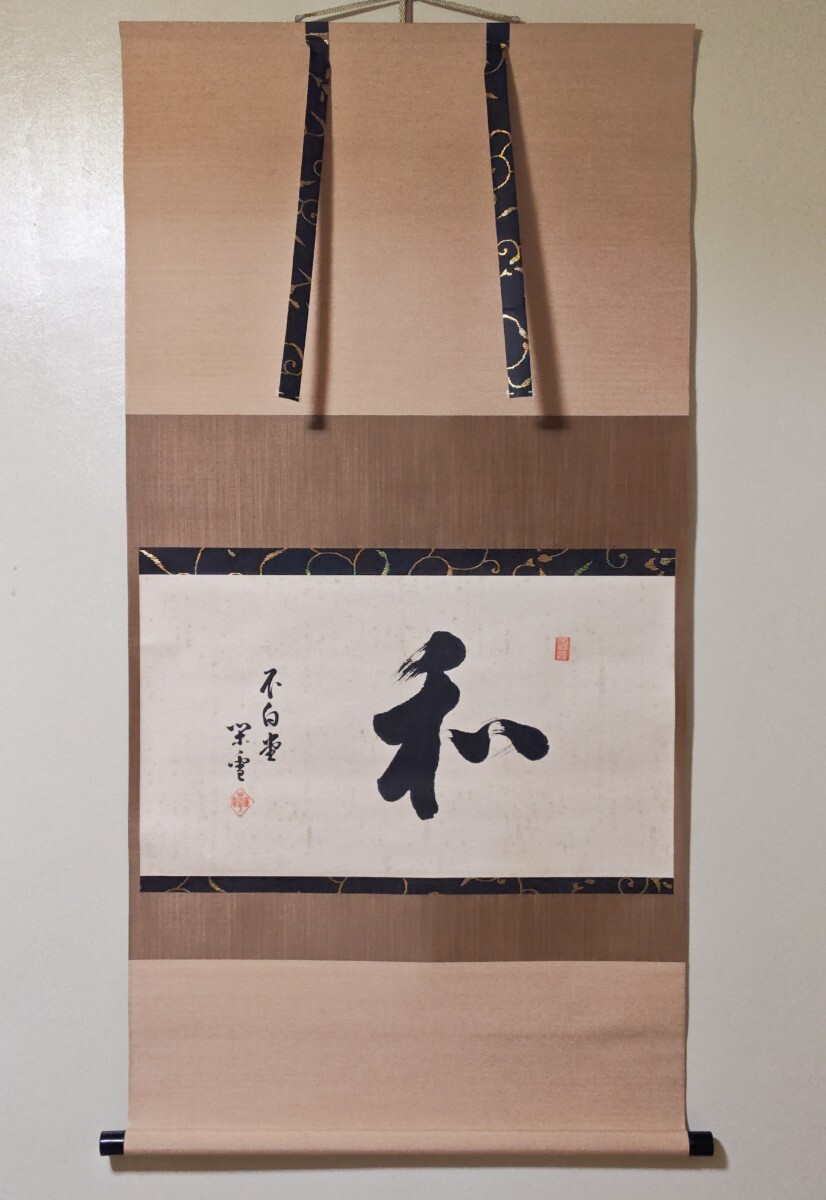 和
不白堂
閑雪